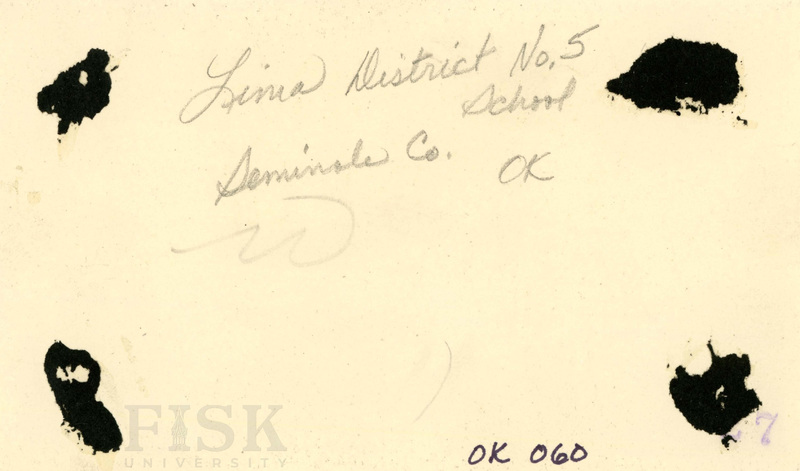 Lima District No. 5
School
Seminole Co. OK
FISK
UNIVERSITY
OK 060
7